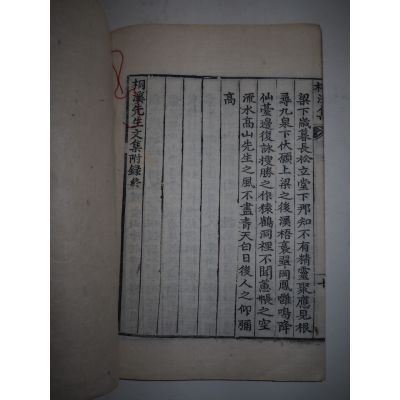 梁下歲暮長松立堂下那知不有精靈聚應見根
尋九泉下伏願上梁之後溪梧裛翠岡鳳雝鳴降
仙臺邊復詠搜勝之作猿鶴洞裡不聞蕙帳之空
流水高山先生之風不盡靑天白日後人之仰彌
高
桐溪先生文集附錄終